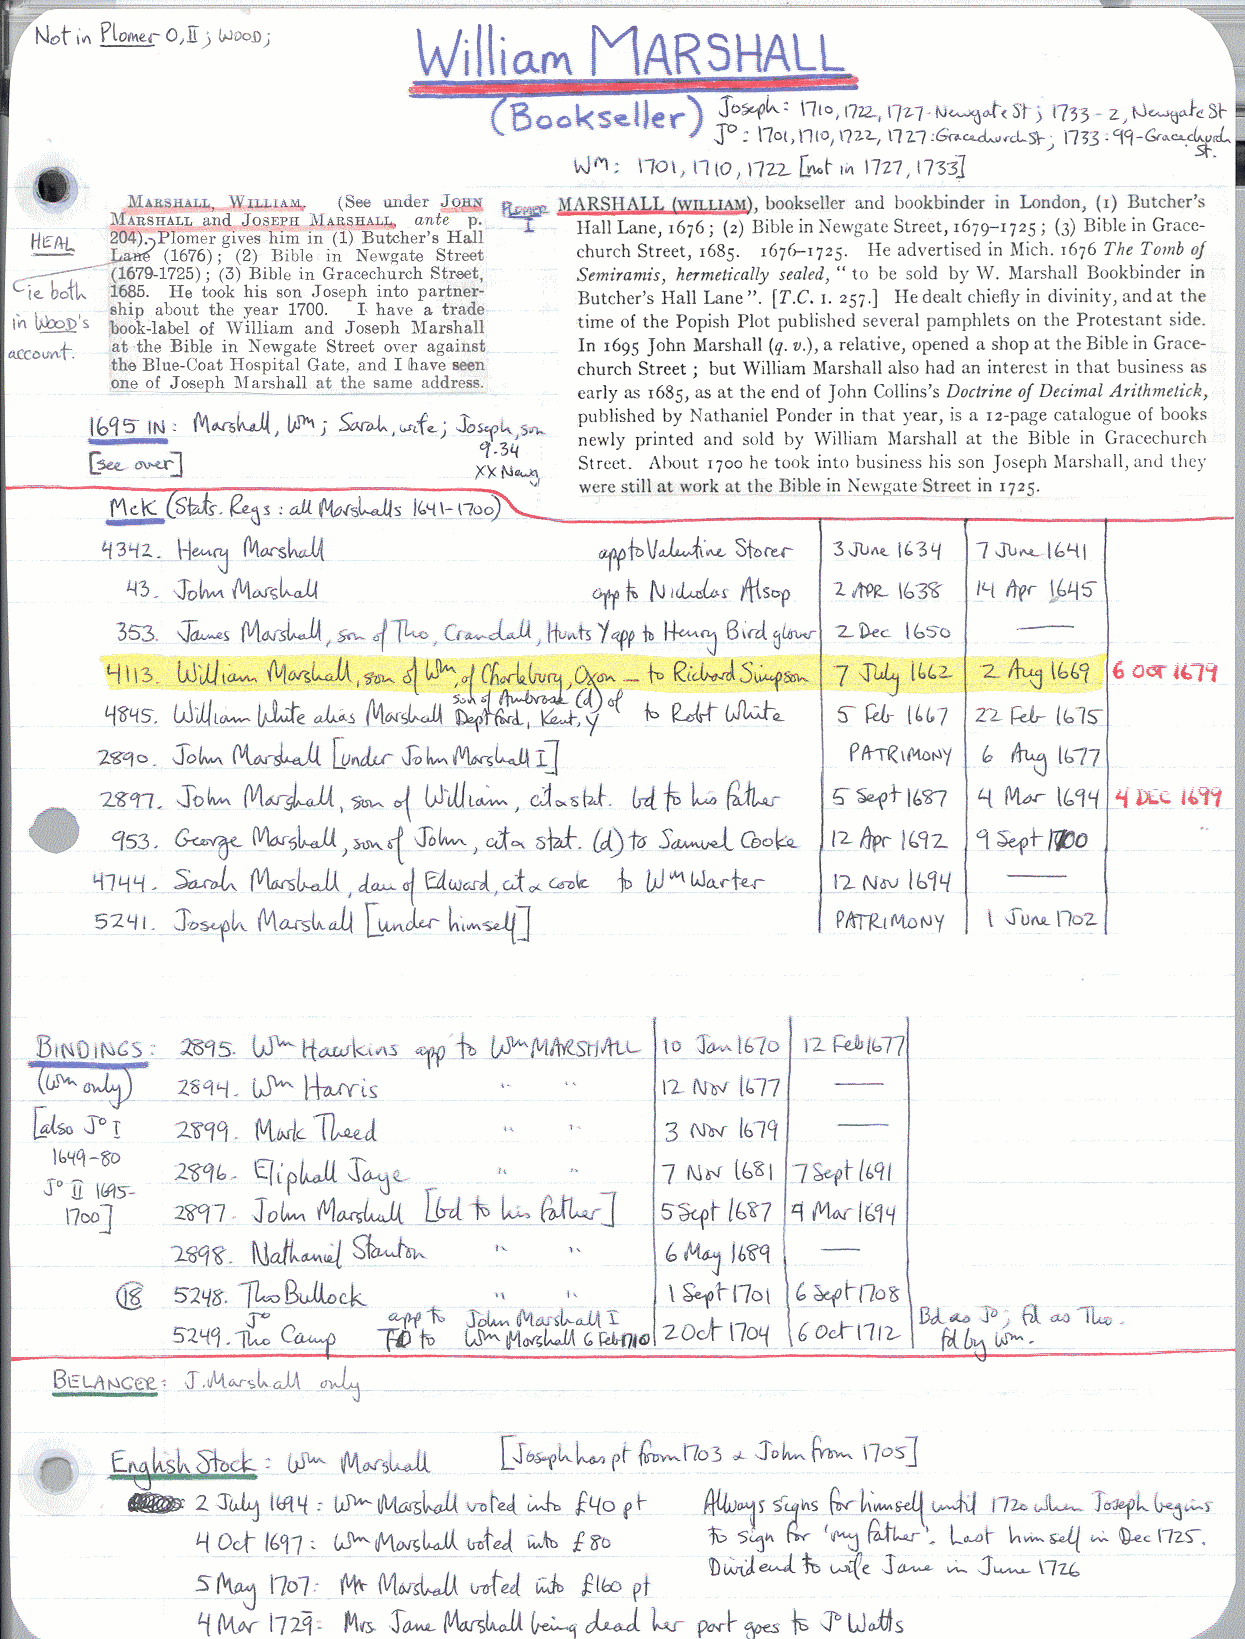 Not in Plomer O, II; WOOD;
William MARSHALL
(Bookseller)
Joseph: 1710, 1722, 1727-Newgate St; 1733-2, Newgate St
Jº: 1701, 1710, 1722, 1727: Gracechurch St; 1733: 99-Gracechurch St.
Wm: 1701, 1710, 1722 [not in 1727, 1733]
HEAL
ie both
in WOOD's
account.
MARSHALL, WILLIAM. (See under JOHN
MARSHALL and JOSEPH MARSHALL, ante p.
204). Plomer gives him in (1) Butcher's Hall
Lane (1676); (2) Bible in Newgate Street
(1679-1725); (3) Bible in Gracechurch Street,
1685. He took his son Joseph into partner-
ship about the year 1700. I have a trade
book-label of William and Joseph Marshall
at the Bible in Newgate Street over against
the Blue-Coat Hospital Gate, and I have seen
one of Joseph Marshall at the same address.
Plomer
I
MARSHALL (WILLIAM), bookseller and bookbinder in London, (1) Butcher's
Hall Lane, 1676; (2) Bible in Newgate Street, 1679-1725; (3) Bible in Grace-
church Street, 1685. 1676-1725. He advertised in Mich. 1676 The Tomb of
Semiramis, hermetically sealed, "to be sold by W. Marshall Bookbinder in
Butcher's Hall Lane". [T.C. I. 257.] He dealt chiefly in divinity, and at the
time of the Popish Plot published several pamphlets on the Protestant side.
In 1695 John Marshall (q. v.), a relative, opened a shop at the Bible in Grace-
church Street; but William Marshall also had an interest in that business as
early as 1685, as at the end of John Collins's Doctrine of Decimal Arithmetick,
published by Nathaniel Ponder in that year, is a 12-page catalogue of books
newly printed and sold by William Marshall at the Bible in Gracechurch
Street. About 1700 he took into business his son Joseph Marshall, and they
were still at work at the Bible in Newgate Street in 1725.
1695 IN: Marshall, Wm; Sarah, wife; Joseph, son
[see over]
9.34
XX Newg
McK (Stats. Regs: all Marshalls 1641-1700)
4342. Henry Marshall app to Valentine Storer 3 June 1634 7 June 1641
43. John Marshall app to Nicholas Alsop 2 APR 1638 14 Apr 1645
353. James Marshall, son of Tho, Crandall, Hunts Y app to Henry Bird glover 2 Dec 1650 —
4113. William Marshall, son of Wm, of Charlebury, Oxon — to Richard Simpson 7 July 1662 2 Aug 1669 6 OCT 1679
4845. William White alias Marshall son of Ambrose (d) of Deptford, Kent, Y to Robt White 5 Feb 1667 22 Feb 1675
2890. John Marshall [under John Marshall I] PATRIMONY 6 Aug 1677
2897. John Marshall, son of William, cit & stat. bd to his father 5 Sept 1687 4 Mar 1694 4 DEC 1699
953. George Marshall, son of John, cit & stat. (d) to Samuel Cooke 12 Apr 1692 9 Sept 1700
4744. Sarah Marshall, dau of Edward, cit & cook to Wm Warter 12 Nov 1694 —
5241. Joseph Marshall [under himself] PATRIMONY 1 June 1702
BINDINGS: 2895. Wm Hawkins app to Wm MARSHALL 10 Jan 1670 12 Feb 1677
(Wm only) 2894. Wm Harris " " 12 Nov 1677 —
[also Jº I 2899. Mark Theed " " 3 Nov 1679 —
1649-80 2896. Eliphall Jaye " " 7 Nov 1681 7 Sept 1691
Jº II 1695-
1700] 2897. John Marshall [bd to his father] 5 Sept 1687 4 Mar 1694
2898. Nathaniel Stanton " " 6 May 1689 —
(18) 5248. Tho Bullock " " 1 Sept 1701 6 Sept 1708
5249. Jº Tho Camp app to John Marshall I TO to Wm Marshall 6 Feb 1710 2 Oct 1704 6 Oct 1712 Bd as Jº; fd as Tho.
fd by Wm.
BELANGER: J. Marshall only
English Stock: Wm Marshall [Joseph has pt from 1703 & John from 1705]
2 July 1694: Wm Marshall voted into £40 pt
4 Oct 1697: Wm Marshall voted into £80
5 May 1707: Mr Marshall voted into £160 pt
4 Mar 1729: Mrs Jane Marshall being dead her part goes to Jº Watts
Always signs for himself until 1720 when Joseph begins
to sign for 'my father'. Last himself in Dec 1725.
Dividend to wife Jane in June 1726